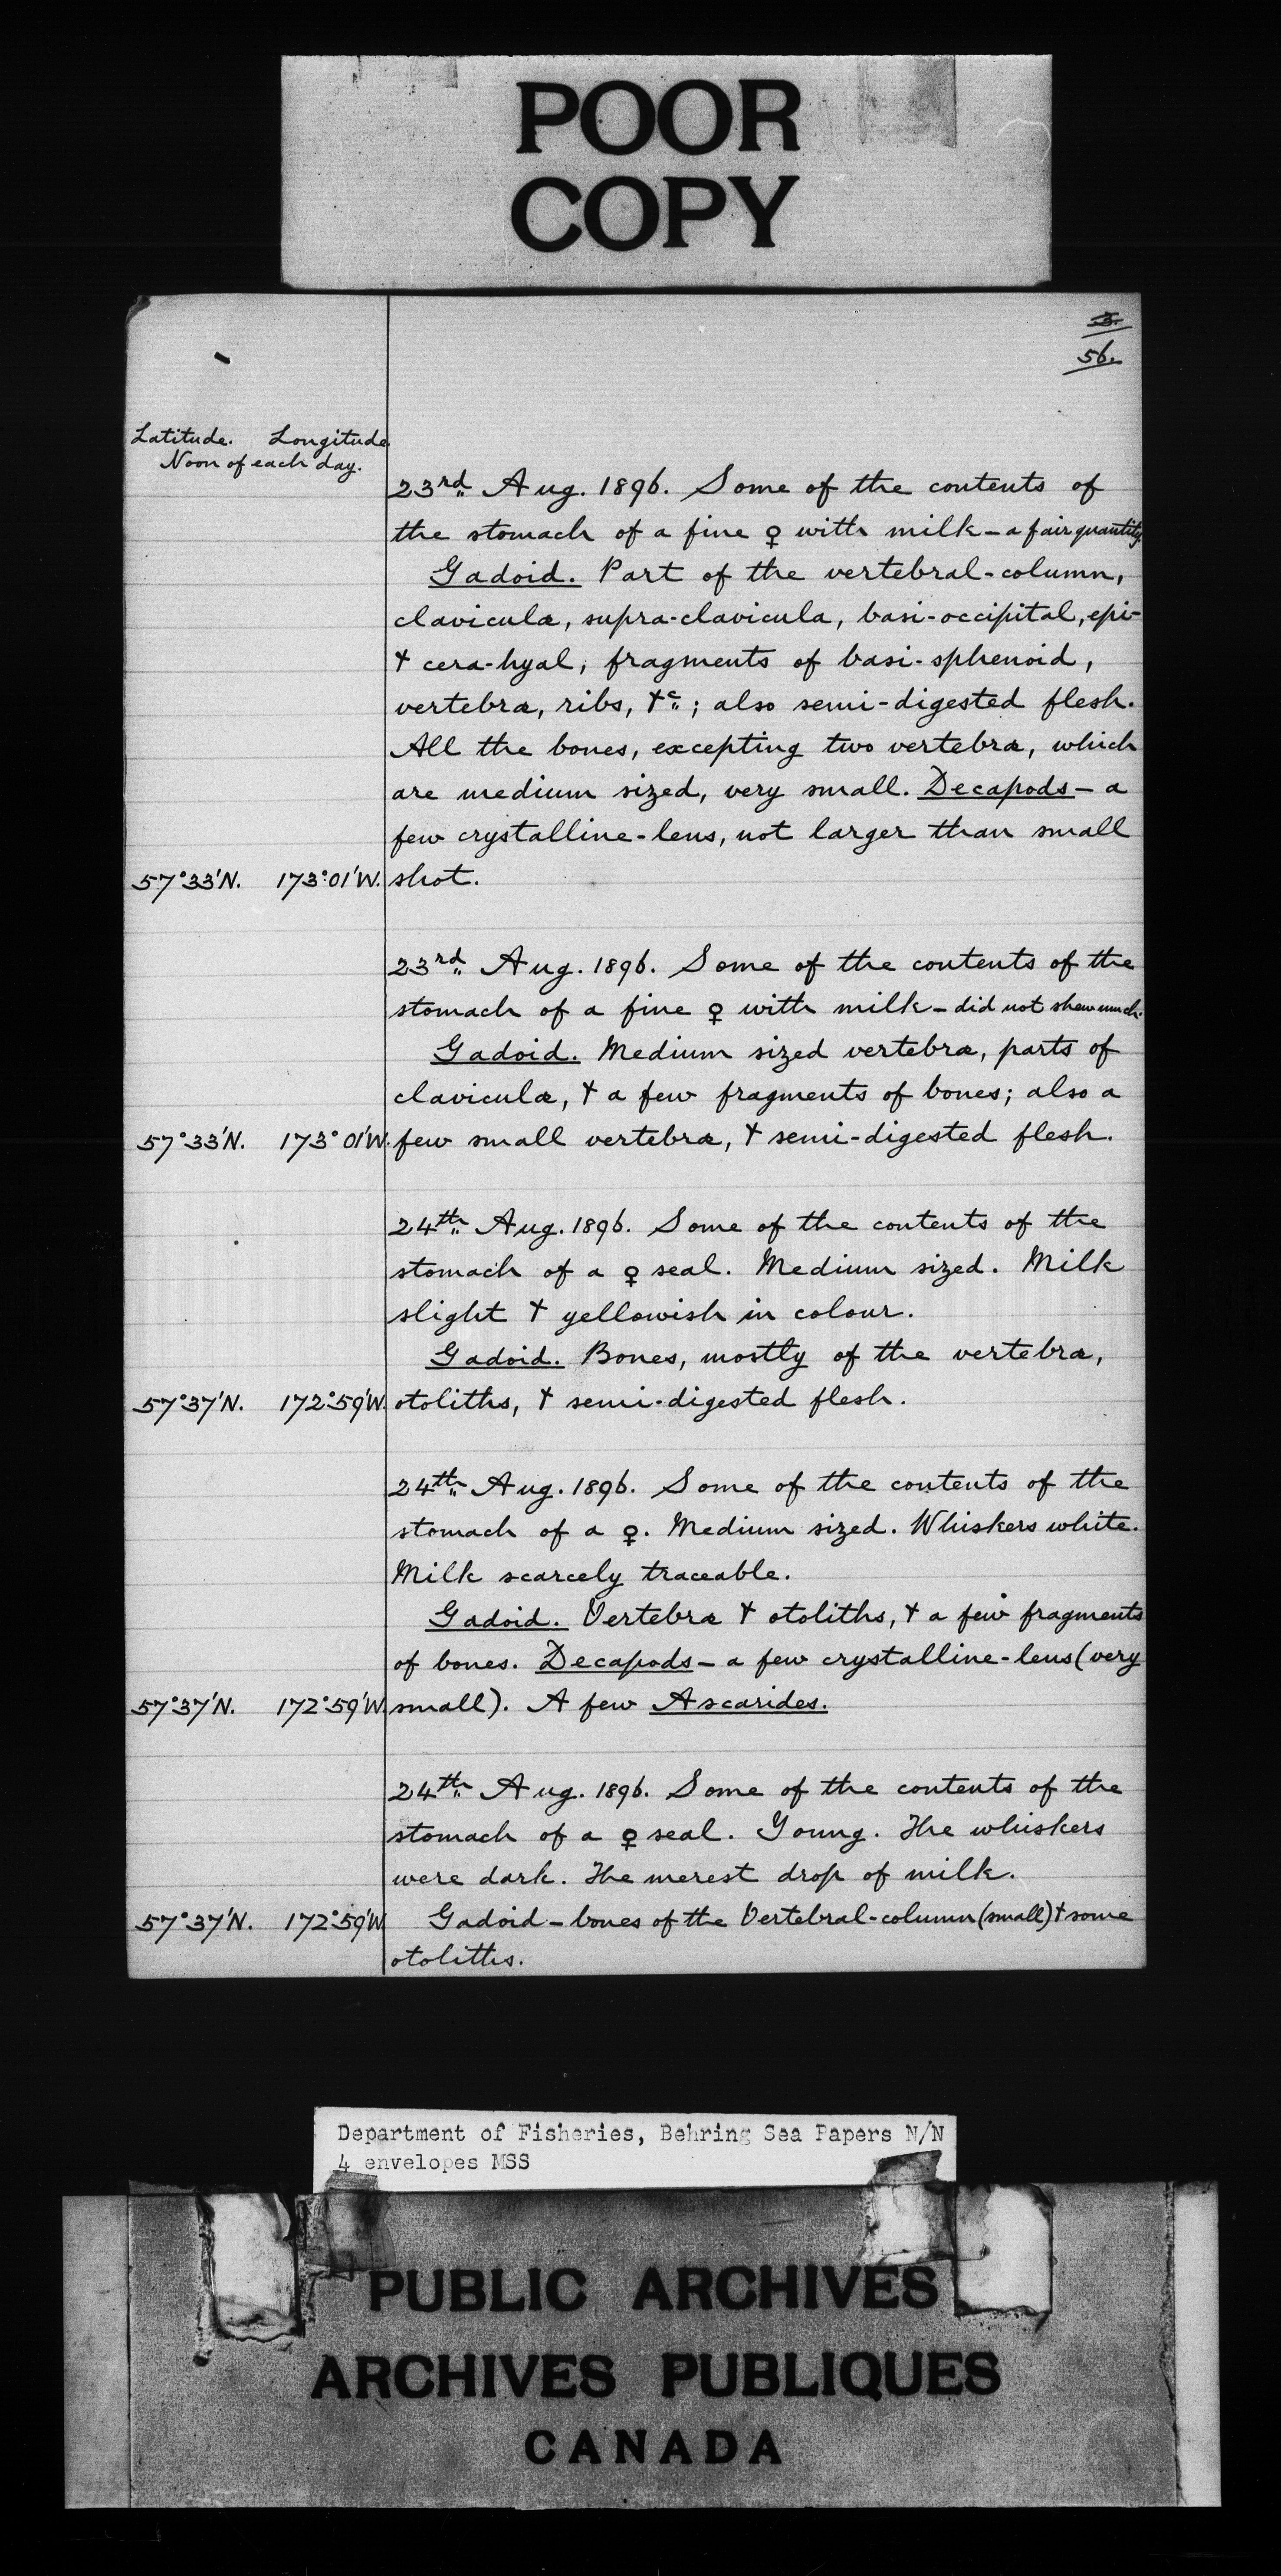 POOR
COPY
3.
56.
Latitude. Longitude.
Noon of each day.
23rd Aug. 1896. Some of the contents of
the stomach of a fine ♀ with milk – a fair quantity.
Gadoid. Part of the vertebral-column,
claviculæ, supra-clavicula, basi-occipital, epi-
& cera-hyal, fragments of basi-sphenoid,
vertebræ, ribs, &c; also semi-digested flesh.
All the bones, excepting two vertebræ, which
are medium sized, very small. Decapods – a
few crystalline-lens, not larger than small
57°33'N. 173°01'W. shot.
23rd Aug. 1896. Some of the contents of the
stomach of a fine ♀ with milk – did not shew much.
Gadoid. Medium sized vertebræ, parts of
claviculæ, & a few fragments of bones; also a
57°33'N. 173°01'W. few small vertebræ, & semi-digested flesh.
24th Aug. 1896. Some of the contents of the
stomach of a ♀ seal. Medium sized. Milk
slight & yellowish in colour.
Gadoid. Bones, mostly of the vertebræ,
57°37'N. 172°59'W. otoliths, & semi-digested flesh.
24th Aug. 1896. Some of the contents of the
stomach of a ♀. Medium sized. Whiskers white.
Milk scarcely traceable.
Gadoid. Vertebræ & otoliths, & a few fragments
of bones. Decapods – a few crystalline-lens (very
57°37'N. 172°59'W. small). A few Ascarides.
24th Aug. 1896. Some of the contents of the
stomach of a ♀ seal. Young. The whiskers
were dark. The merest drop of milk.
57°37'N. 172°59'W Gadoid – bones of the Vertebral-column (small) & some
otoliths.
Department of Fisheries, Behring Sea Papers N/N
4 envelopes MSS
PUBLIC ARCHIVES
ARCHIVES PUBLIQUES
CANADA